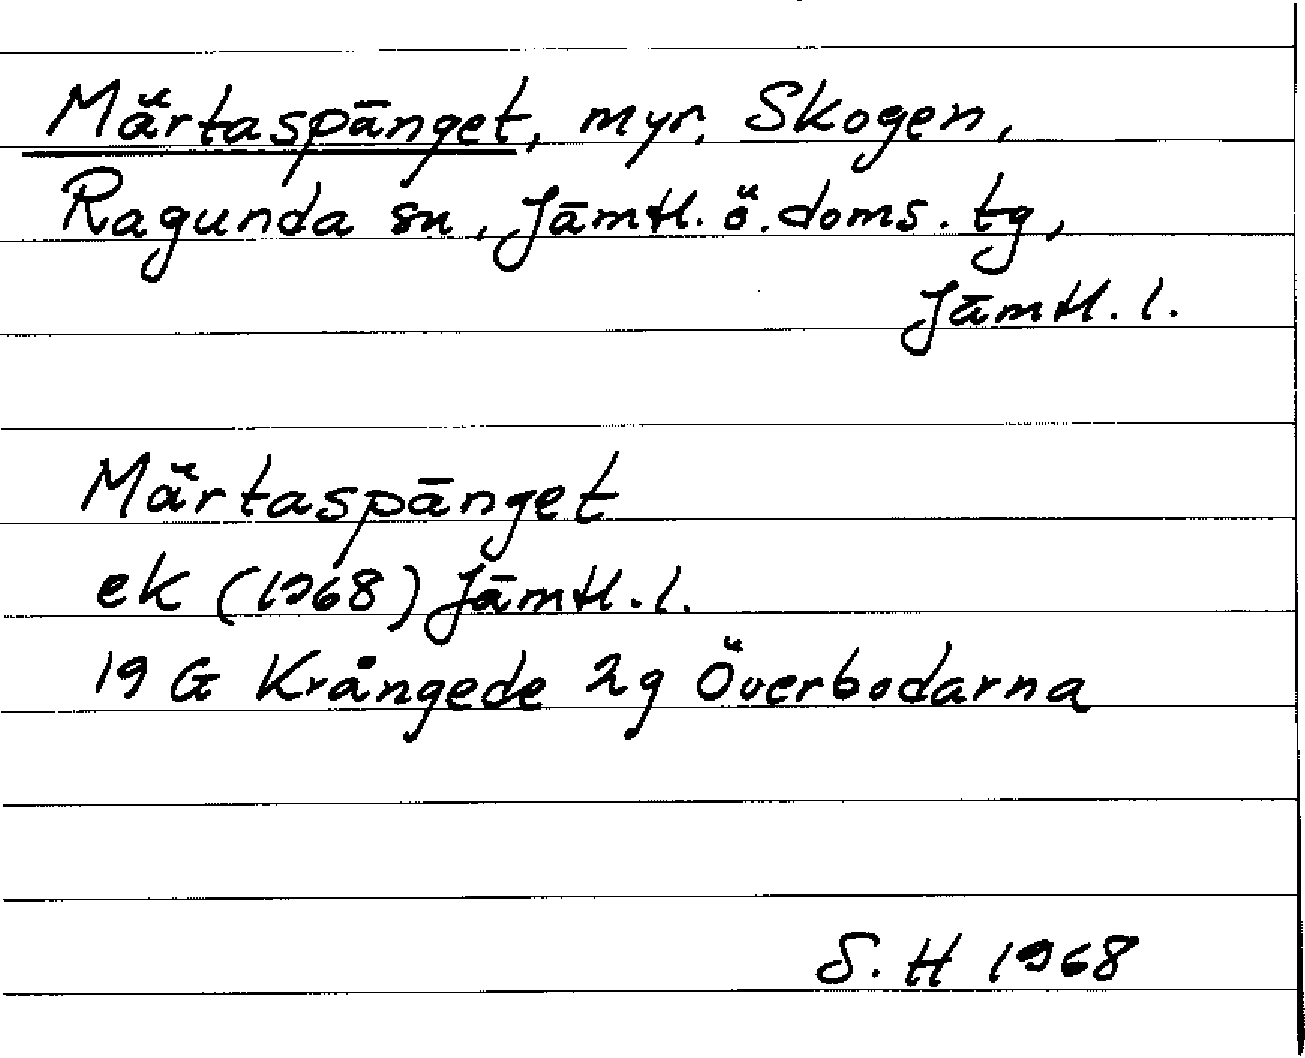 Märtaspänget, myr, Skogen,
Ragunda sn, Jämtl. ö. doms. tg,
Jämtl. l.
Märtaspänget
ek (1968) Jämtl. l.
19 G Krångede 2g Överbodarna
S. H 1968